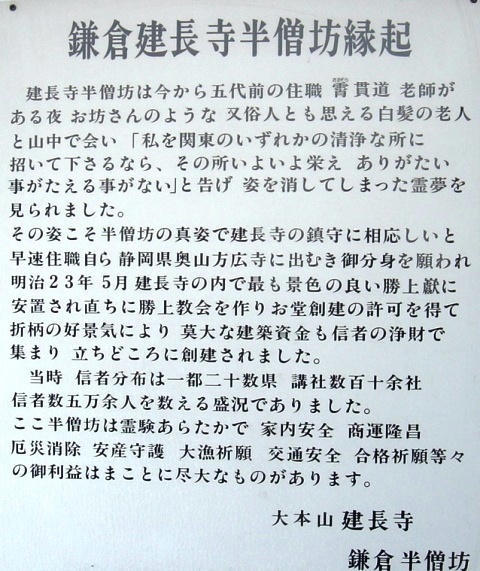 鎌倉建長寺半僧坊縁起
建長寺半僧坊は今から五代前の住職 霄 貫道 老師が
ある夜 お坊さんのような 又俗人とも思える白髪の老人
と山中で会い 「私を関東のいずれかの清浄な所に
招いて下さるなら、その所いよいよ栄え ありがたい
事がたえる事がない」と告げ 姿を消してしまった霊夢を
見られました。
その姿こそ半僧坊の真姿で建長寺の鎮守に相応しいと
早速住職自ら 静岡県奥山方広寺に出むき御分身を願われ
明治23年 5月 建長寺の内で最も景色の良い勝上嶽に
安置され直ちに勝上教会を作りお堂創建の許可を得て
折柄の好景気により 莫大な建築資金も信者の浄財で
集まり 立ちどころに創建されました。
当時 信者分布は一都二十数県 講社数百十余社
信者数五万余人を数える盛況でありました。
ここ半僧坊は霊験あらたかで 家内安全 商運隆昌
厄災消除 安産守護 大漁祈願 交通安全 合格祈願等々
の御利益はまことに尽大なものがあります。
大本山 建長寺
鎌倉 半僧坊